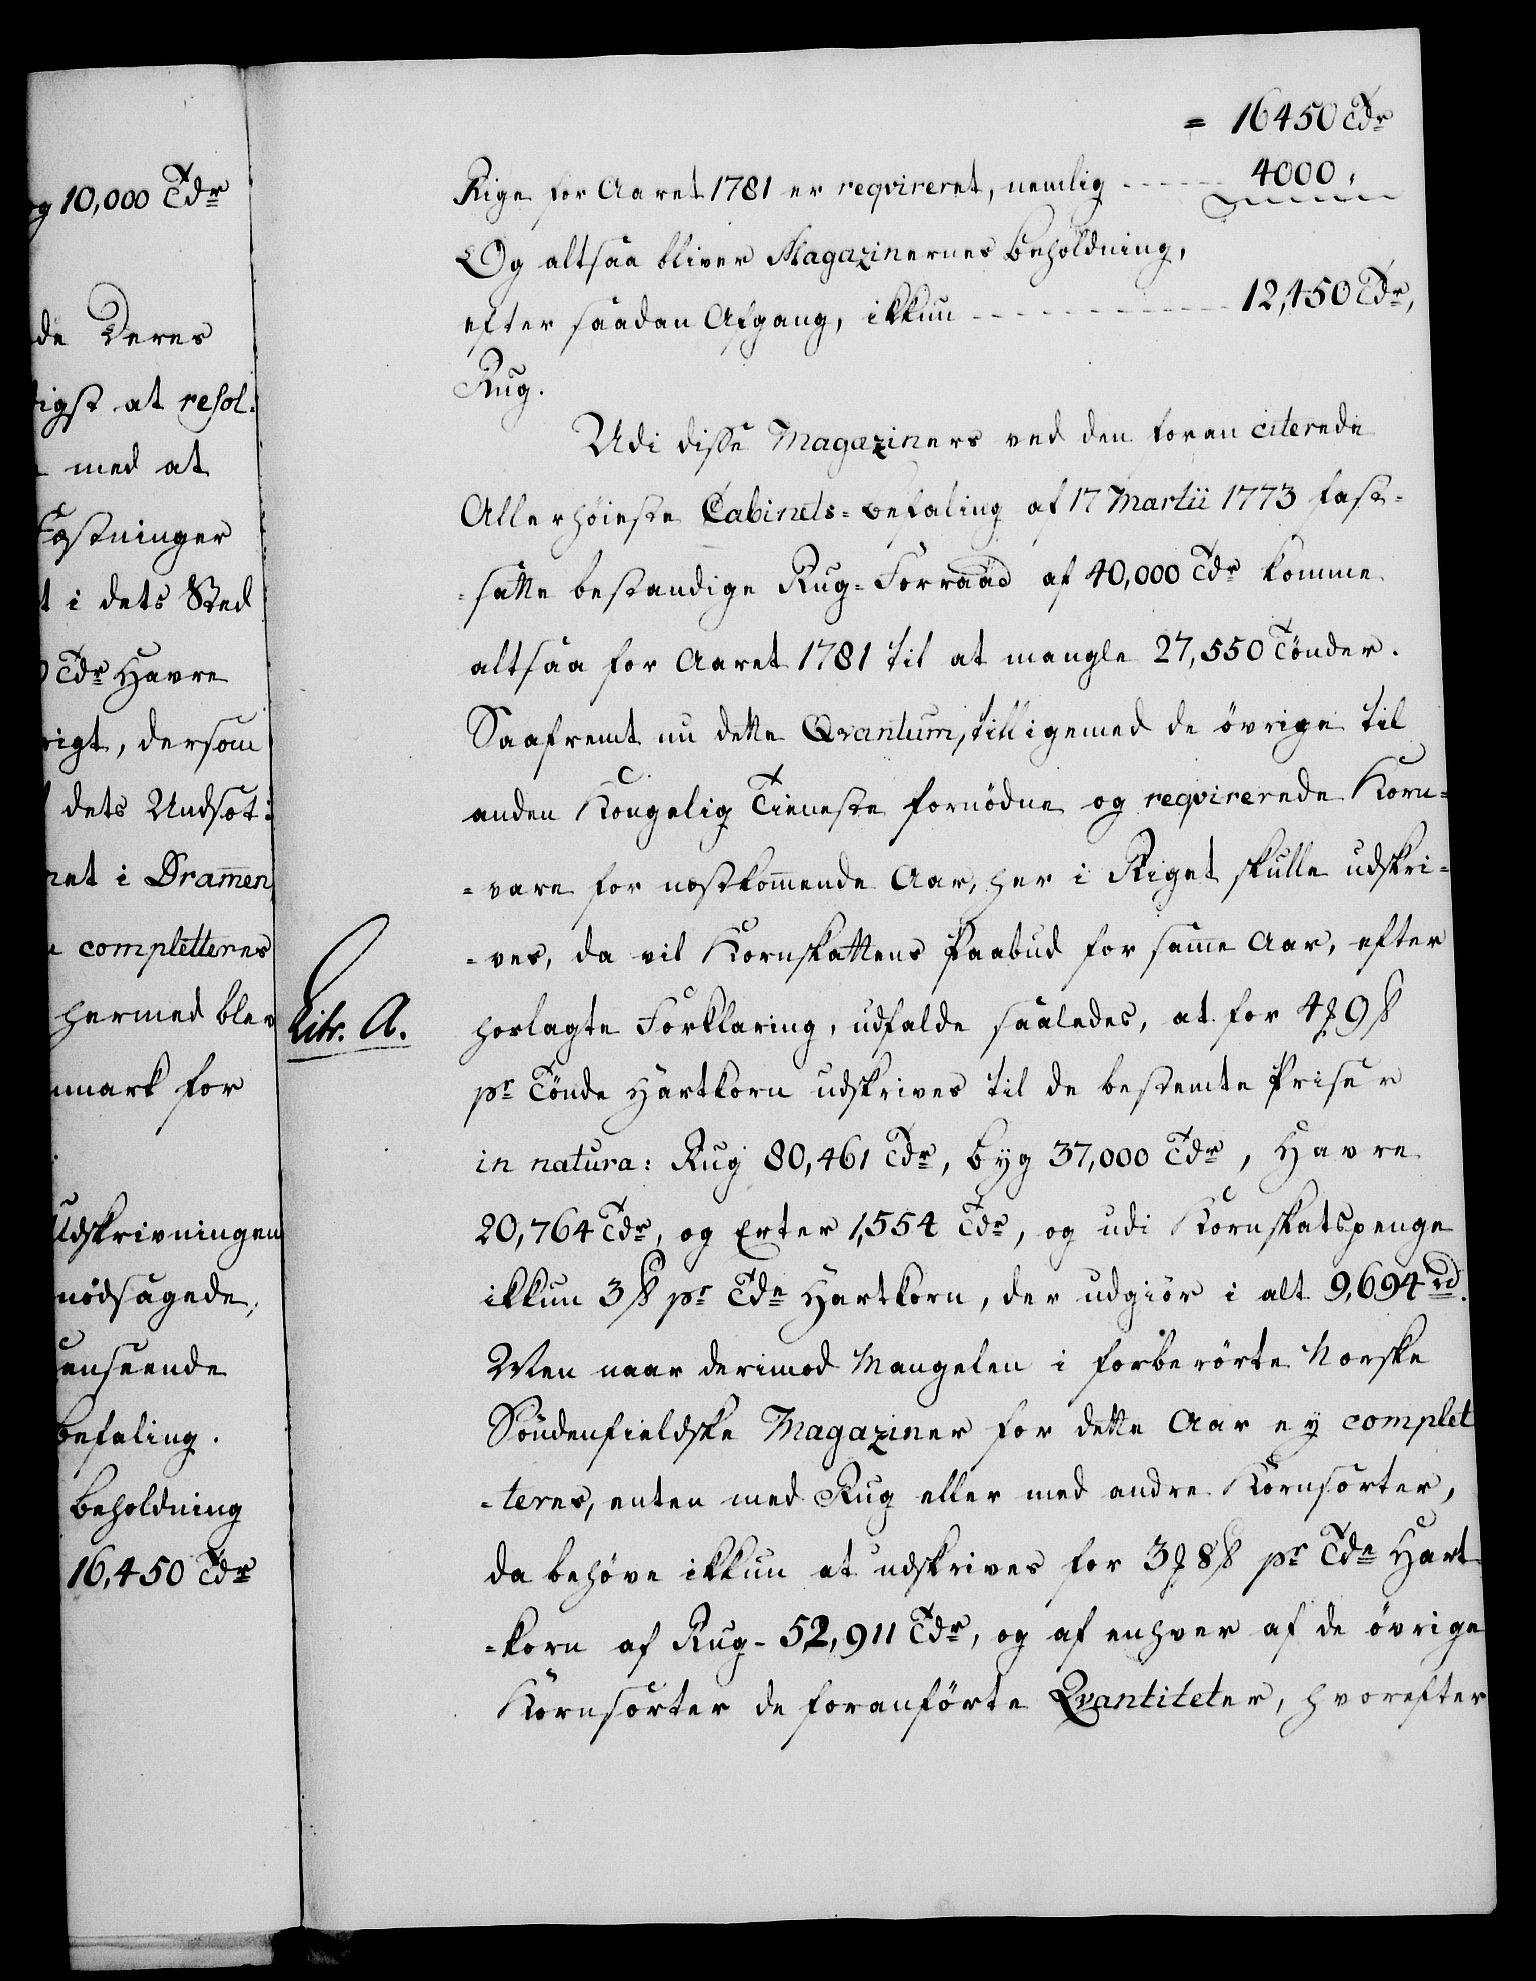 g 10,000 Tdr
de Deres
igst at resol:
med at
Fæstninger
t i dets Sted
Tdr Havre
rigt, dersom
dets Undsæt:
net i Dramen
completteres
hermed blev
nmark for
Udskrivningen
nödsagede,
anseende
befaling.
Beholdning
16,450 Tdr
= 16450 Tdr
Rige for Aaret 1781 er reqvireret, nemlig ----- 4000.
Og altsaa bliver Magazinernes Beholdning,
efter saadan Afgang, ikkun ----------- 12,450 Tdr,
Rug.
Udi disse Magaziners ved den foran citerede
Allerhöieste Cabinets-befaling af 17 Martii 1773 fast-
-satte bestandige Rug-Forraad af 40,000 Tdr komme
altsaa for Aaret 1781 til at mangle 27,550 Tönder.
Saafremt nu dette Qvantum, tilligemed de övrige til
anden Kongelig Tieneste fornödne og reqvirerede Korn-
-vare for næstkom̅ende Aar, her i Riget skulle udskri-
-ves, da vil Kornskattens Paabud for sam̅e Aar, efter
Litr. A.
hoslagte Forklaring, udfalde saaledes, at for 4 ꝫ 9 ß
pr Tönde Hartkorn udskrives til de bestemte Priser
in natura: Rug 80,461 Tdr, Byg 37,000 Tdr, Havre
20,764 Tdr, og Erter 1,554 Tdr, og udi Kornskatspenge
ikkun 3 ß pr Tde Hartkorn, der udgiör i alt 9,694 rd.
Men naar derimod Mangelen i forberörte Norske
Söndenfieldske Magaziner for dette Aar ey complet
-teres, enten med Rug eller med andre Kornsorter,
da behöve ikkun at udskrives for 3 ꝫ 8 ß pr Tde Hart
-korn af Rug - 52,911 Tdr, og af enhver af de övrige
Kornsorter de foranförte Qvantiteter, hvorefter